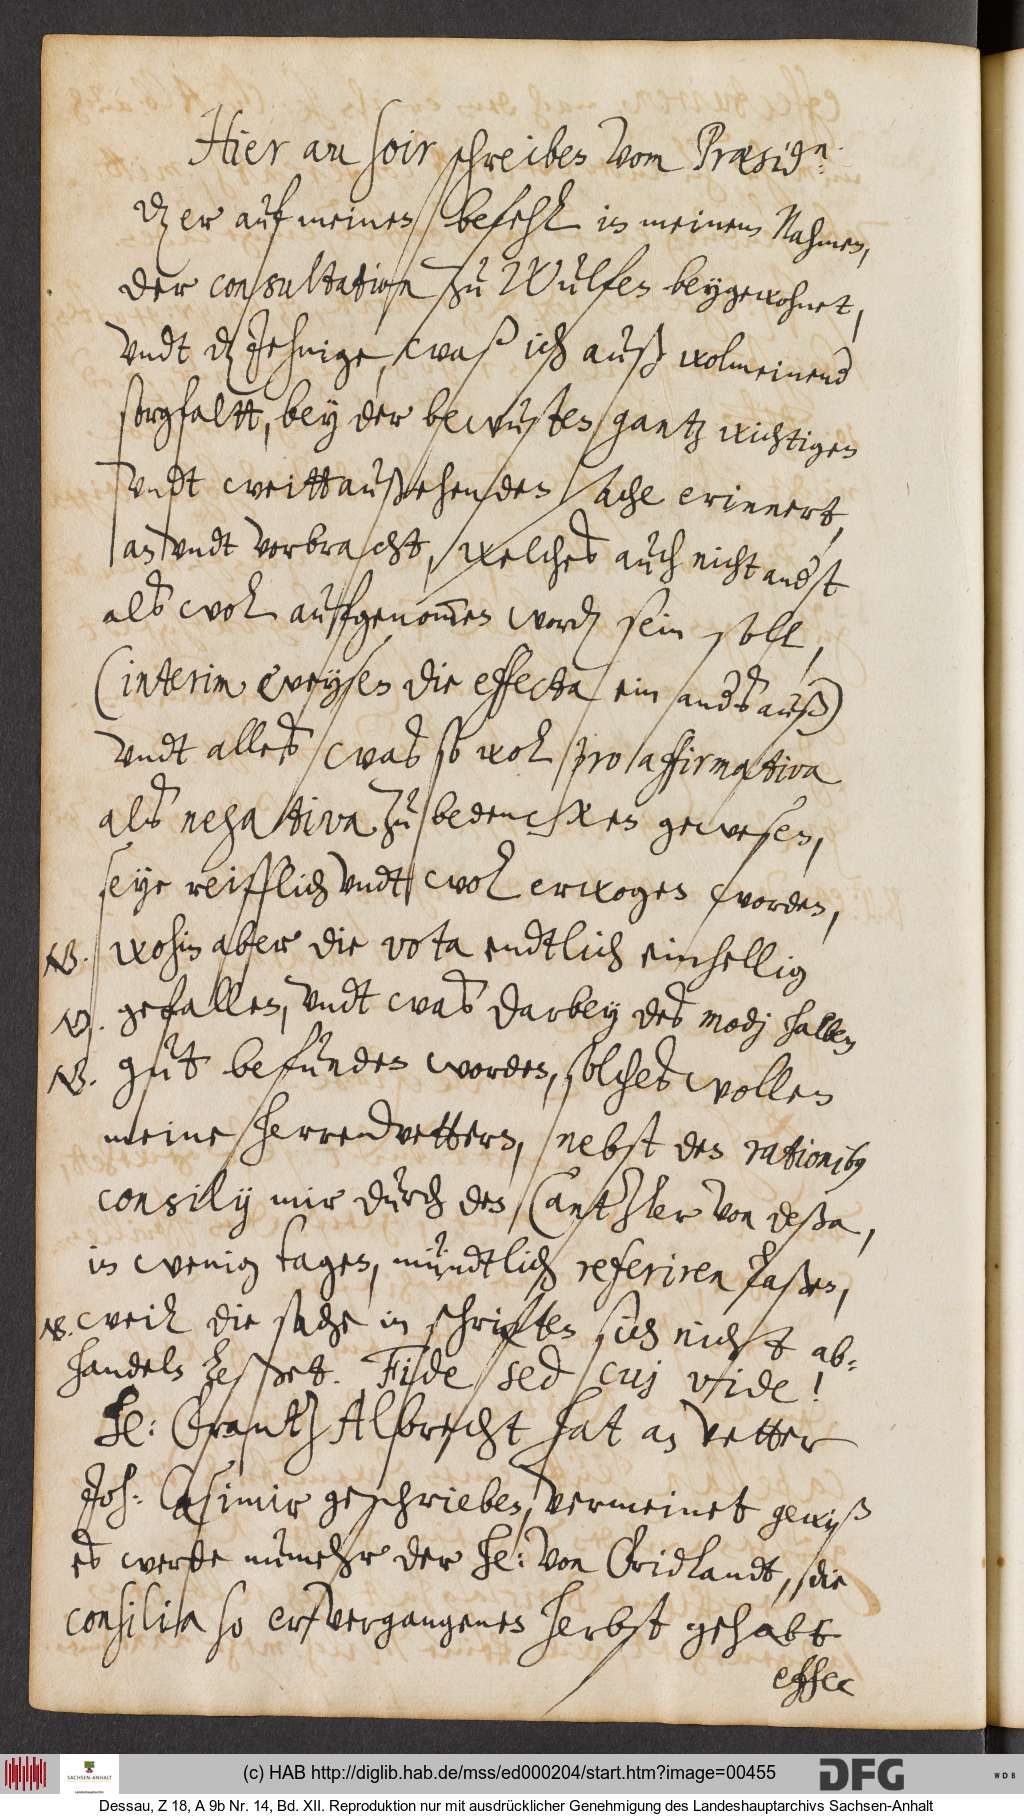 Hier au soir schreiben vom Præsid.n:
dz er auf meinen befehl in meinem Nahmen,
der consultation zu Wulfen beygewohnet,
undt dz Jehnige, waß ich auß wolmeinend
sorgfaltt, bey der bewusten gantz wichtigen
undt weittaußehenden sache erinnert,
an undt vorbracht, welches auch nicht anderst
als wol aufgenom̅en word sein soll,
(interim weysen die effecta ein anders auß)
undt alles was so wol pro affirmativa
als negativa zu bedencken gewesen,
seye reifflich undt wol erwogen worden,
NB. wohin aber die vota endtlich einhellig
NB. gefallen, undt was darbey des modj halben
NB. gut befunden worden, solches wollen
meine herrenvettern, nebst den rationibus
consilij mir durch den Cantzler von deßa,
in wenig tagen, mündtlich referiren laßen,
NB. weil die sache in schriften sich nicht ab-
handeln leßet. Fide sed cuj vide!
He: Frantz Albrecht hat an vetter
Joh: Casimir geschrieben, vermeinet gewiß
es werde numehr der He: von Fridlandt, die
consilia so er vergangenen herbst gehabt
effec
(c) HAB http://diglib.hab.de/mss/ed000204/start.htm?image=00455
SACHSEN-ANHALT
DFG
WDB
Dessau, Z 18, A 9b Nr. 14, Bd. XII. Reproduktion nur mit ausdrücklicher Genehmigung des Landeshauptarchivs Sachsen-Anhalt